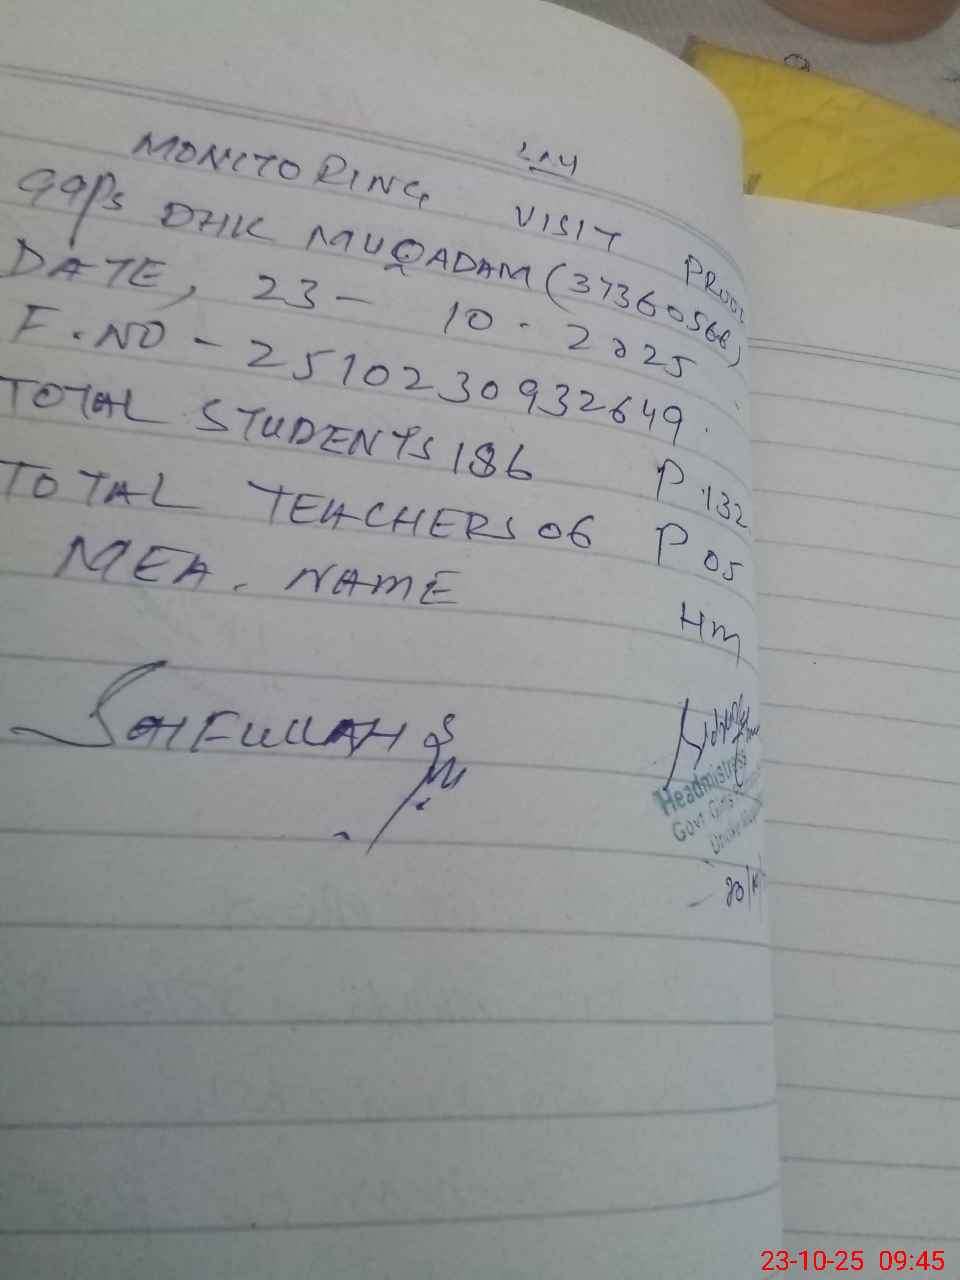 MONITORING VISIT PROOF
GGPS DHK MUQADAM (37360566)
DATE, 23-10-2025
F.NO-2510230932649.
TOTAL STUDENTS 186 P.132
TOTAL TEACHERS 06 P 05
MEA. NAME HM
Headmistress
Govt. Girls
23-10-25 09:45